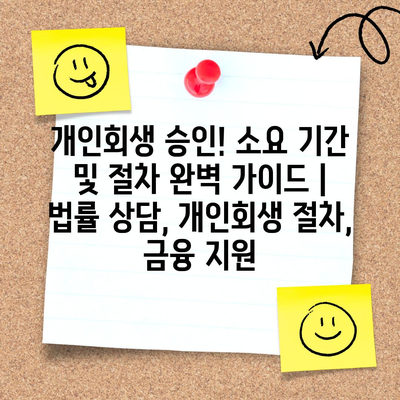 개인회생 승인! 소요 기간
및 절차 완벽 가이드 |
법률 상담, 개인회생 절차,
금융 지원